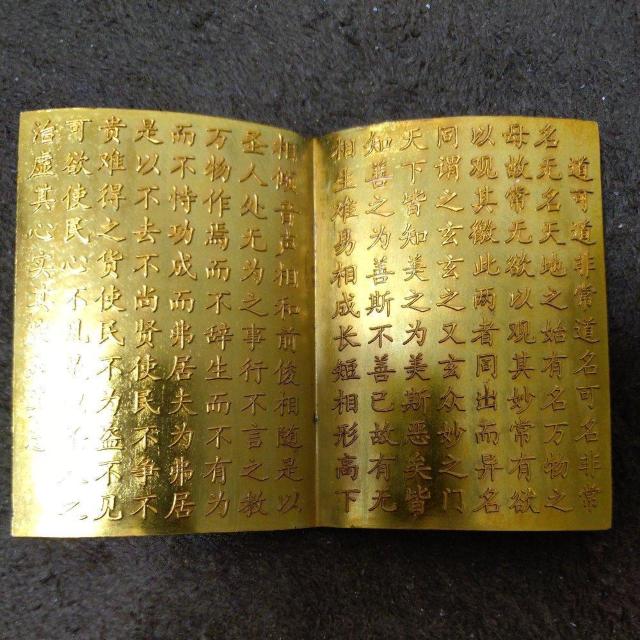 道可道非常道名可名非常
名无名天地之始有名万物之
母故常无欲以观其妙常有欲
以观其徼此两者同出而异名
同谓之玄玄之又玄众妙之门
天下皆知美之为美斯恶矣皆
知善之为善斯不善已故有无
相生难易相成长短相形高下
相倾音声相和前後相随是以
圣人处无为之事行不言之教
万物作焉而不辞生而不有为
而不恃功成而弗居夫为弗居
是以不去不尚贤使民不争不
贵难得之货使民不为盗不见
可欲使民心不乱
治虚其心实其